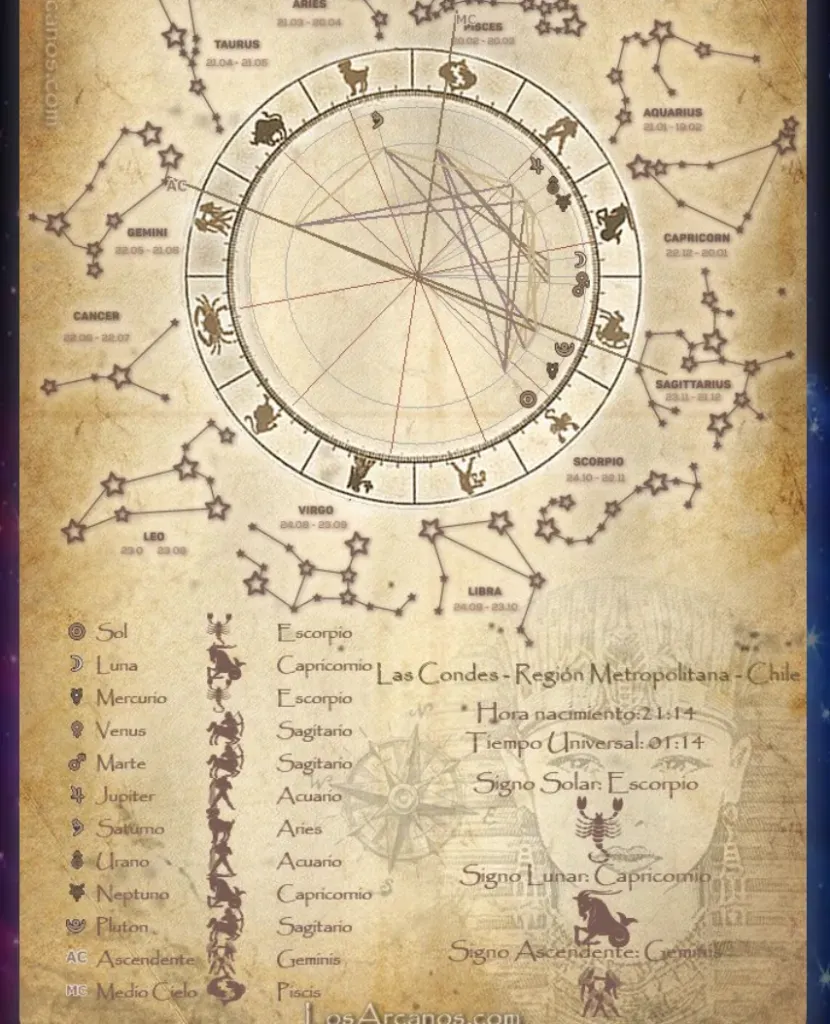 canos.com
ARIES
21.03 - 20.04
MC
PISCES
20.02 - 20.03
TAURUS
21.04 - 21.05
AQUARIUS
21.01 - 19.02
AC
GEMINI
22.05 - 21.06
CAPRICORN
22.12 - 20.01
CANCER
22.06 - 22.07
SAGITTARIUS
23.11 - 21.12
SCORPIO
24.10 - 22.11
LEO
VIRGO
24.08 - 23.09
LIBRA
24.09 - 23.10
Sol Escorpio
Luna Capricornio
Mercurio Escorpio
Venus Sagitario
Marte Sagitario
Jupiter Acuario
Saturno Aries
Urano Acuario
Neptuno Capricornio
Pluton Sagitario
AC Ascendente Geminis
MC Medio Cielo Piscis
Las Condes - Región Metropolitana - Chile
Hora nacimiento:21:14
Tiempo Universal: 01:14
Signo Solar: Escorpio
Signo Lunar: Capricornio
Signo Ascendente: Geminis
LosArcanos.com